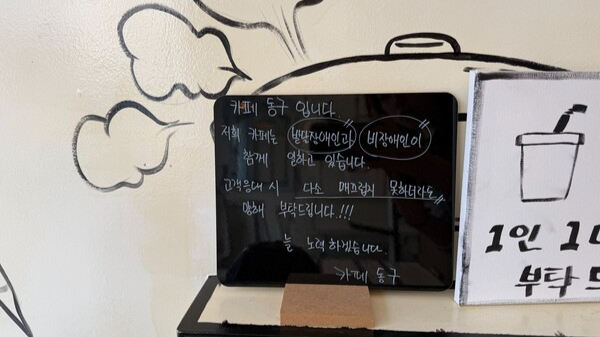 카페 동구 입니다.
저희 카페는 발달장애인과 비장애인이
함께 일하고 있습니다.
고객응대 시 다소 매끄럽지 못하더라도
양해 부탁드립니다.!!!
늘 노력하겠습니다.
카페 동구
1인 1
부탁